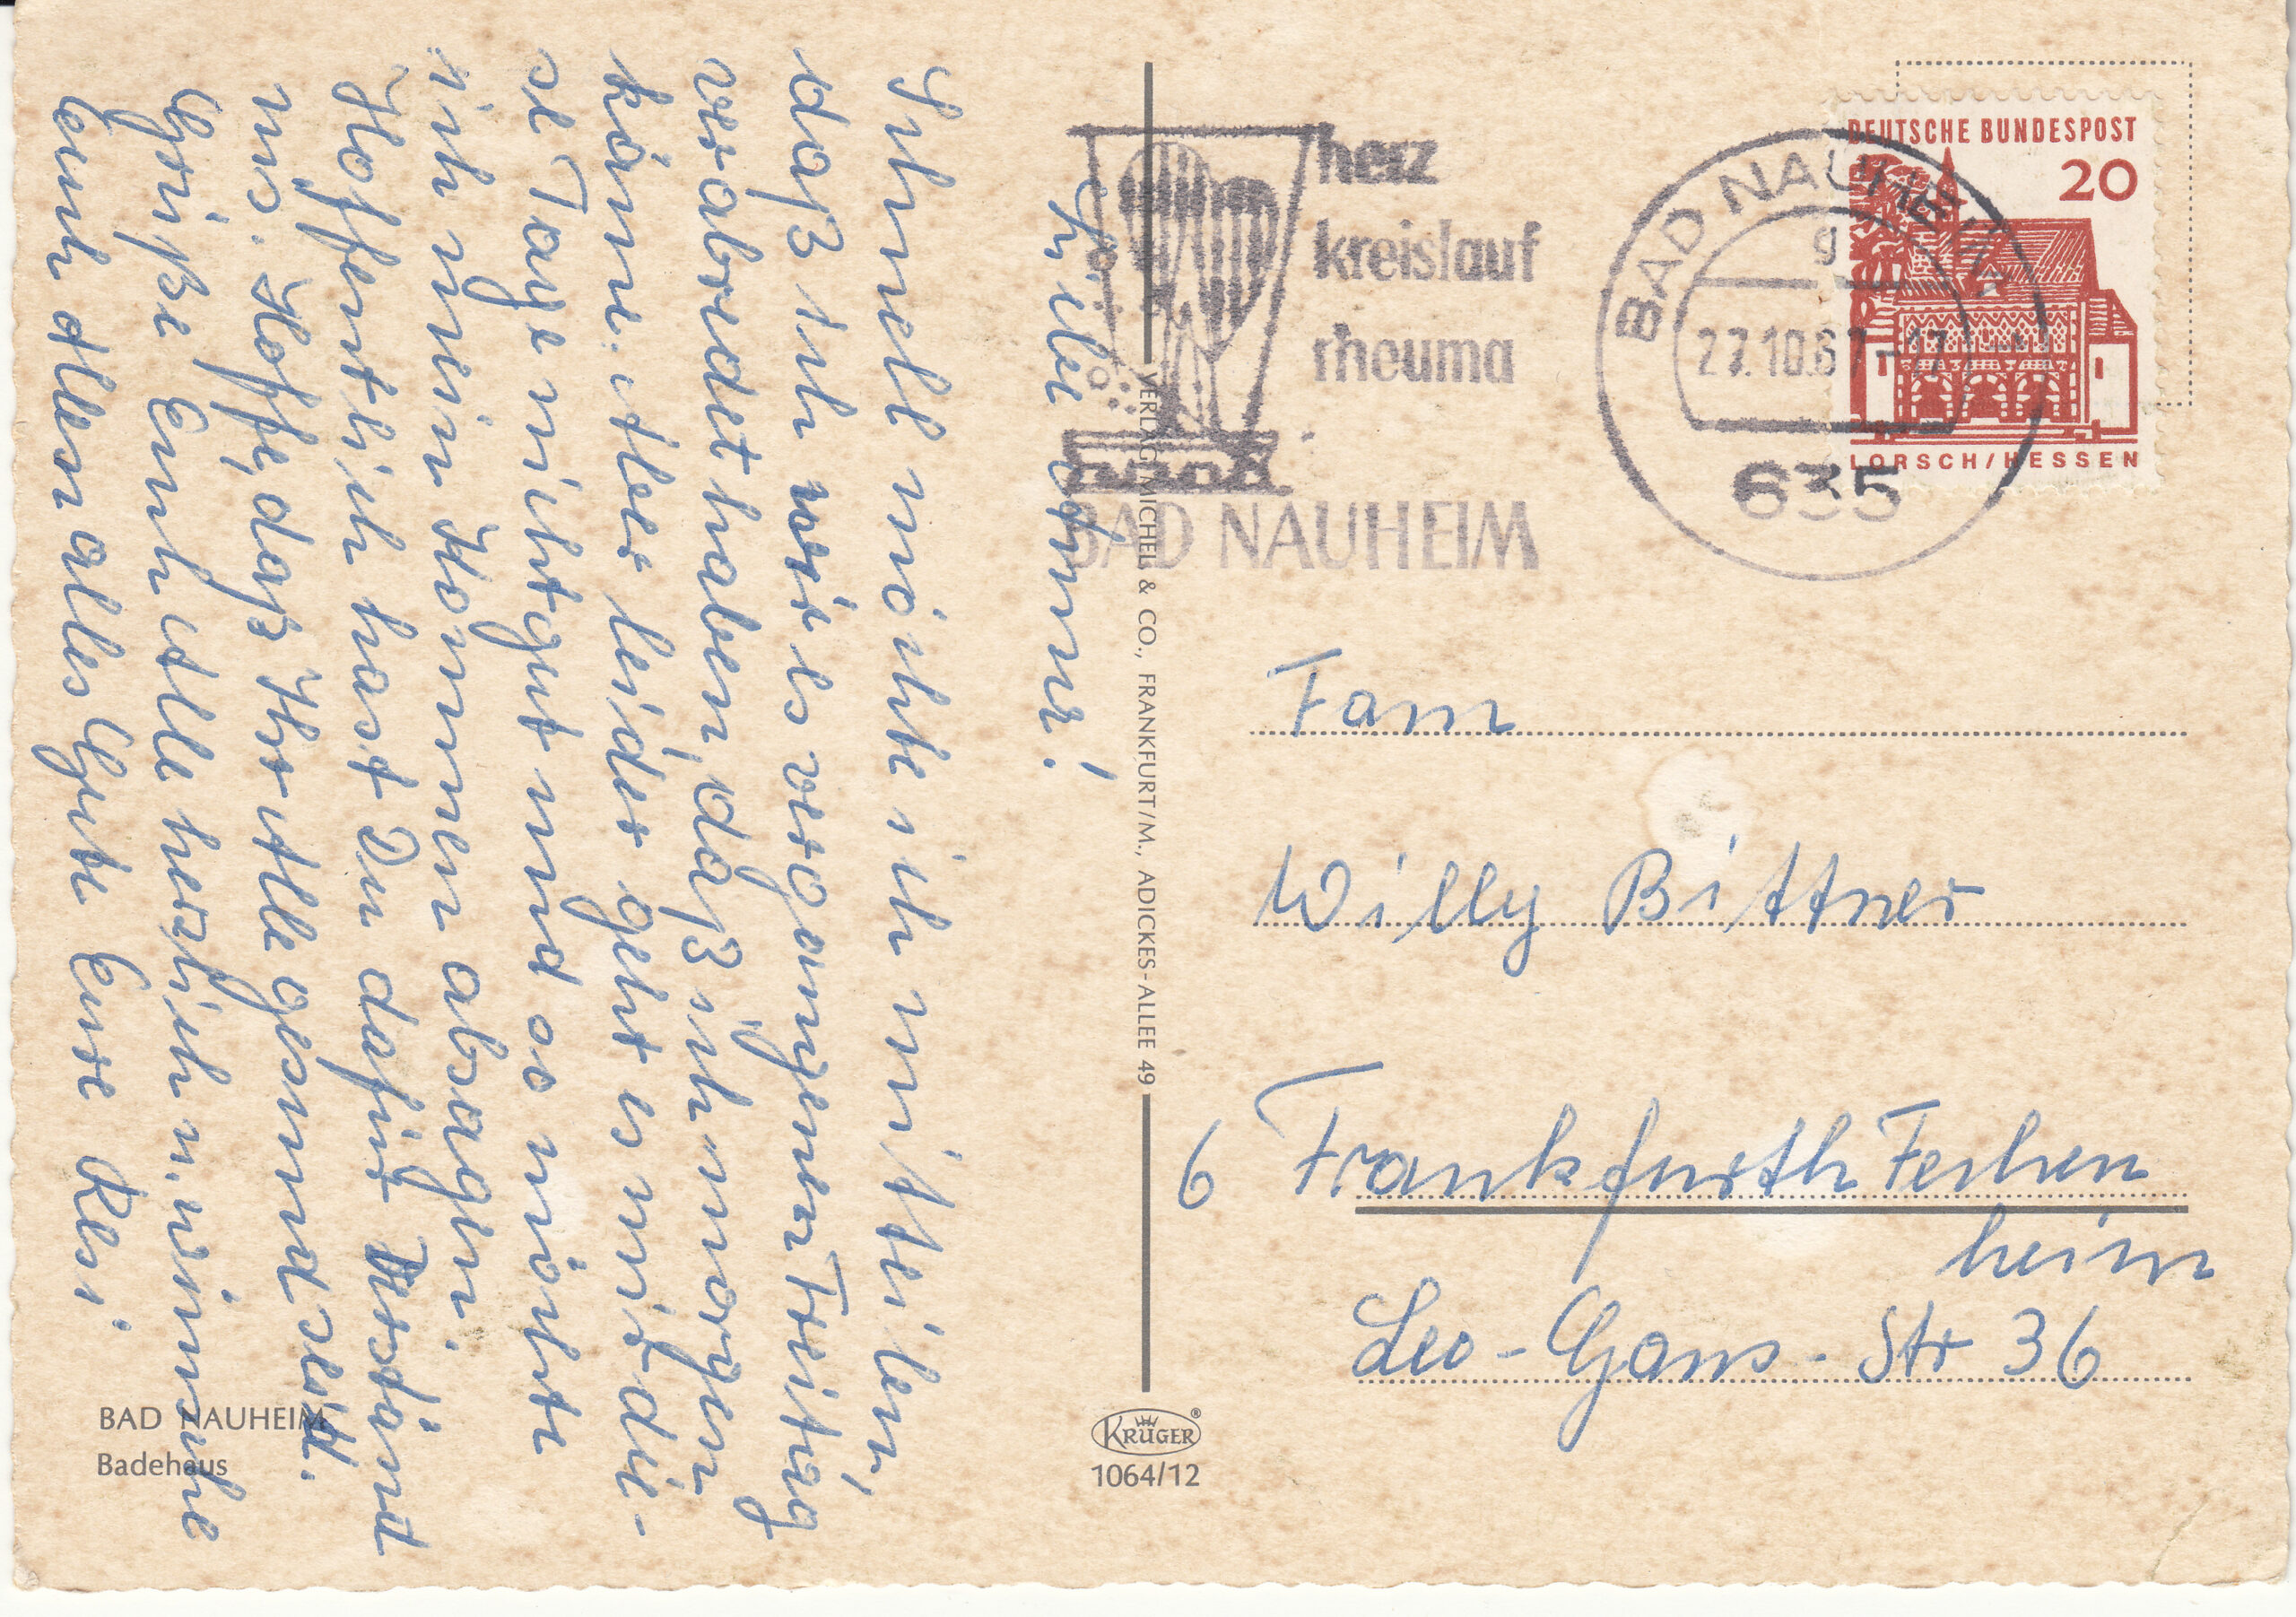 Liebe Änne!
Schnell möchte ich mitteilen,
daß ich wir es vergangenen Freitag
verabredet haben, daß ich morgen
käme. Aber leider geht es mir die-
se Tage nicht gut und so möchte
ich mein Kommen absagen.
Hoffentlich hast Du dafür Verständ
nis. Hoffe, daß Ihr alle gesund seid.
Grüße Euch alle herzlich u. wünsche
Euch allen alles Gute Eure Resi
BAD NAUHEIM
Badehaus
VERLAG MICHEL & CO., FRANKFURT/M., ADICKES-ALLEE 49
KRÜGER®
1064/12
herz
kreislauf
rheuma
BAD NAUHEIM
BAD NAUHEIM
g
27.10.67-17
635
DEUTSCHE BUNDESPOST
20
LORSCH/HESSEN
Fam
Willy Bittner
6 Frankfurth Fechen
heim
Leo-Gans-Str 36